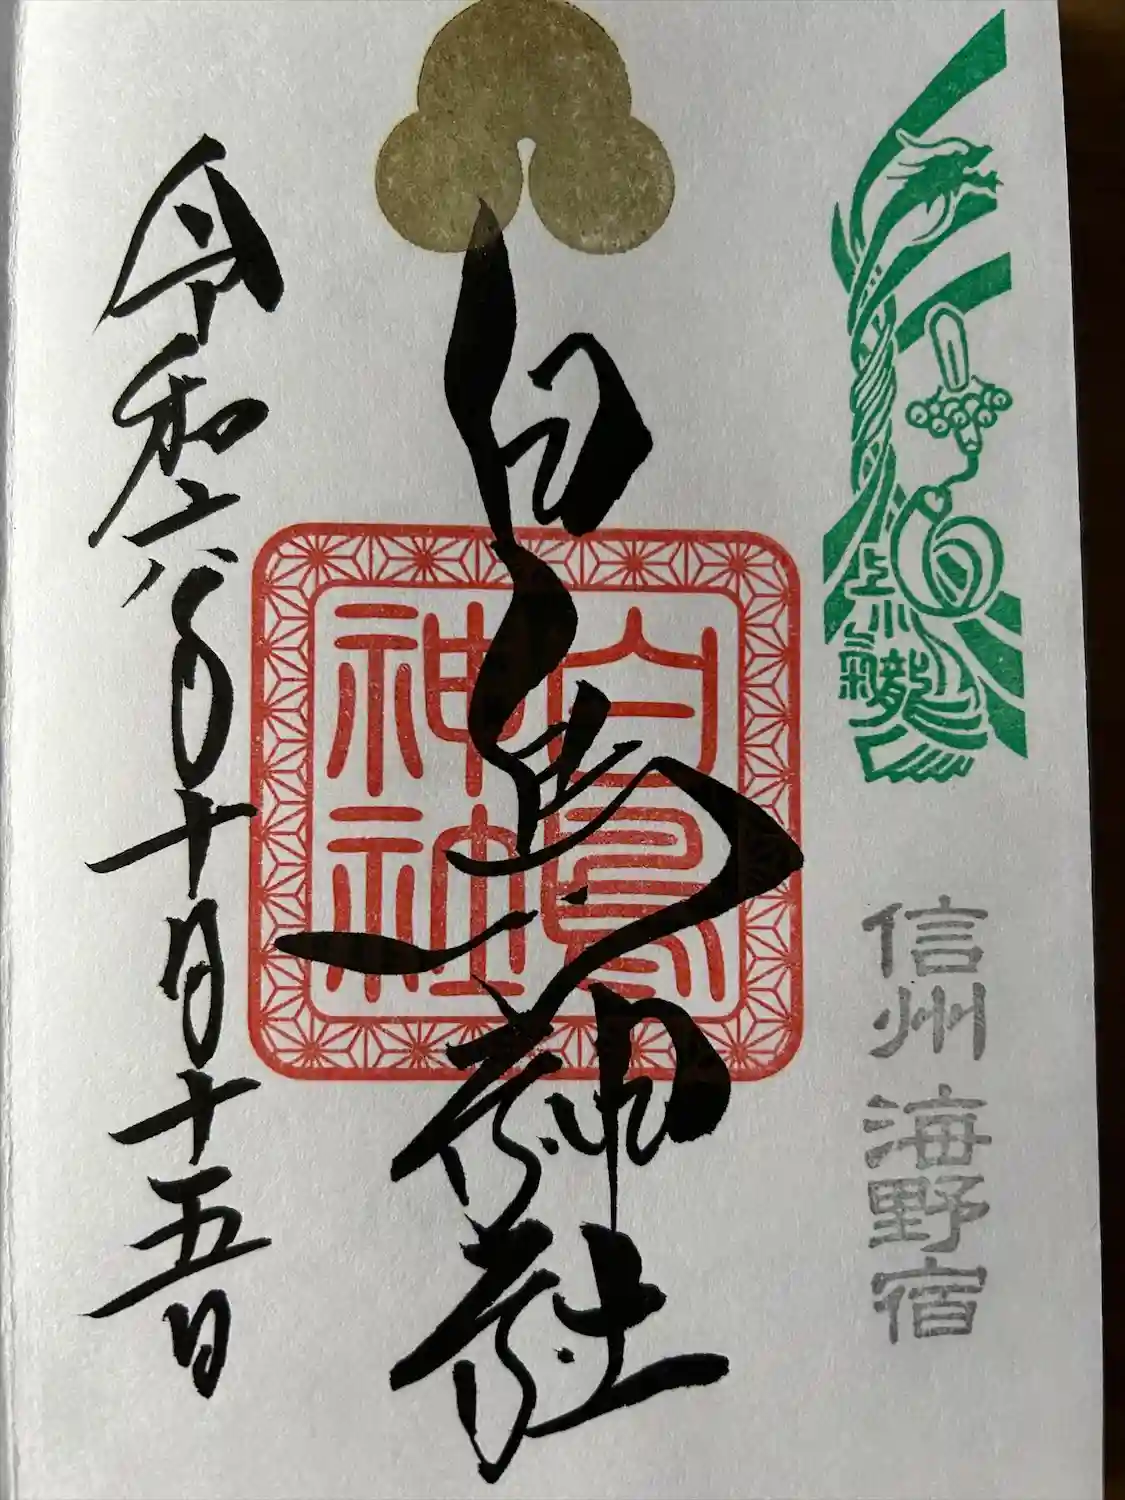 上小
龍
信州 海野宿
白鳥神社
白鳥
神社
令和六年十月十五日